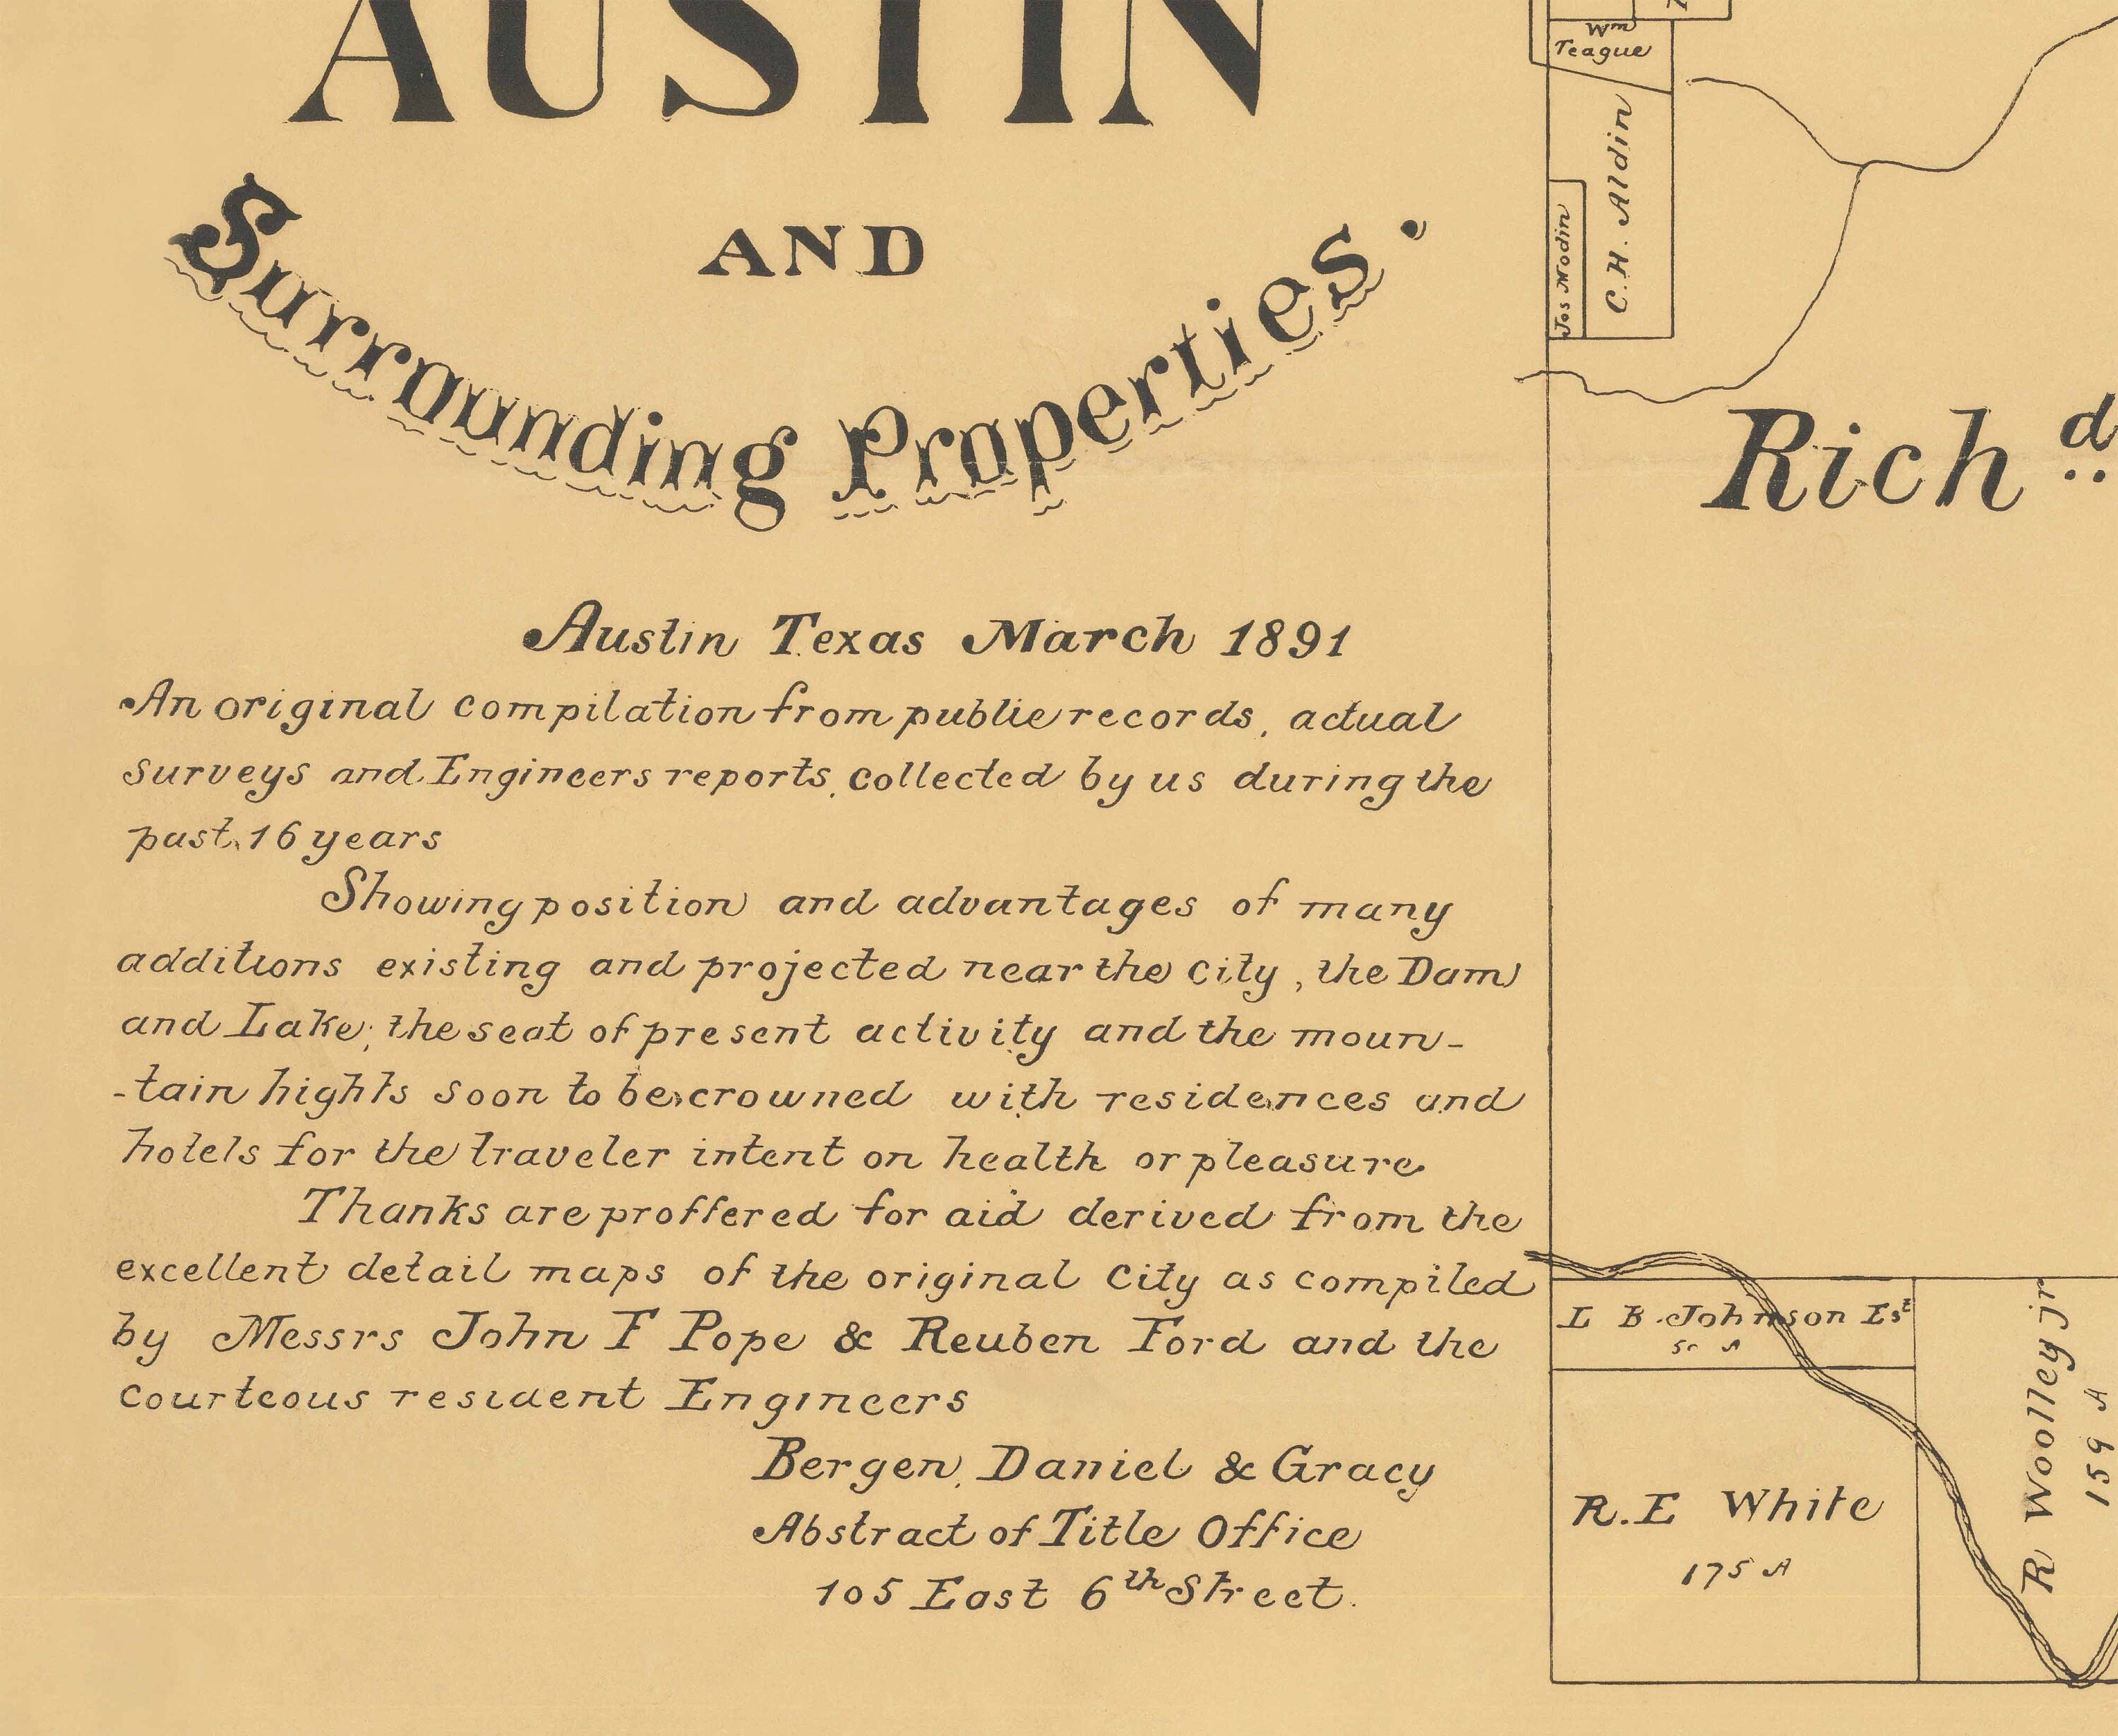 AUSTIN
AND
Surrounding Properties.
Austin Texas March 1891
An original compilation from public records, actual
surveys and Engineers reports, collected by us during the
past 16 years
Showing position and advantages of many
additions existing and projected near the city, the Dam
and Lake; the seat of present activity and the moun-
-tain hights soon to be crowned with residences and
hotels for the traveler intent on health or pleasure
Thanks are proffered for aid derived from the
excellent detail maps of the original City as compiled
by Messrs John F Pope & Reuben Ford and the
courteous resident Engineers
Bergen, Daniel & Gracy
Abstract of Title Office
105 East 6th Street.
Wm
Teague
C.H. Aldin
Jos Nodin
Rich d
L B. Johnson Est
R.E White
175 A
R Woolley jr
159 A